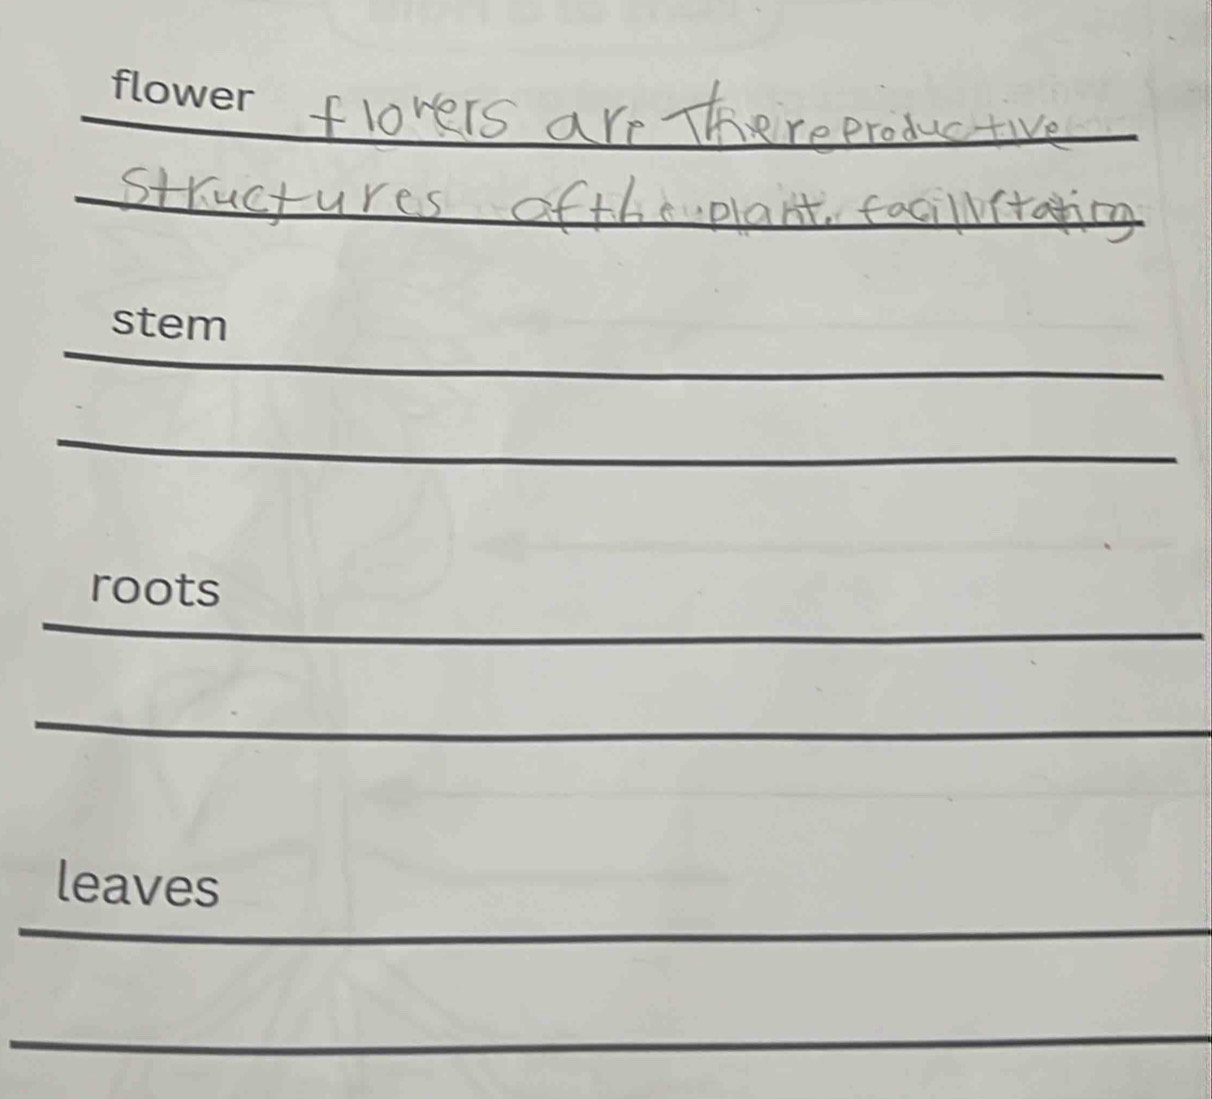 flower flowers are The reproductive
structures of the plant. facillitating
stem
roots
leaves